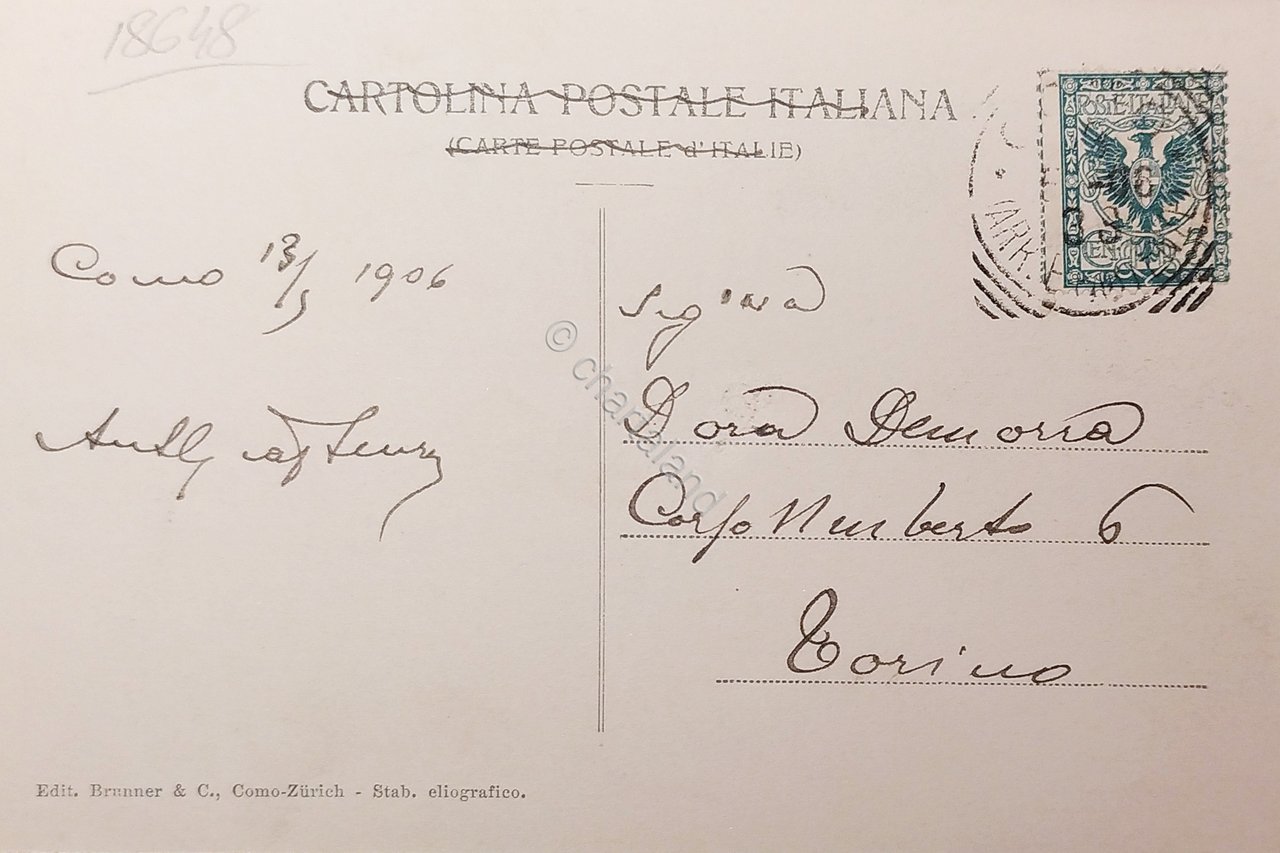 18648
CARTOLINA POSTALE ITALIANA
(CARTE POSTALE d'ITALIE)
POSTE ITALIANE
Como 13/5 1906
Sig.ina
Dora Demorra
Corso Umberto 6
Torino
© chartaland
Edit. Brunner & C., Como-Zürich - Stab. eliografico.